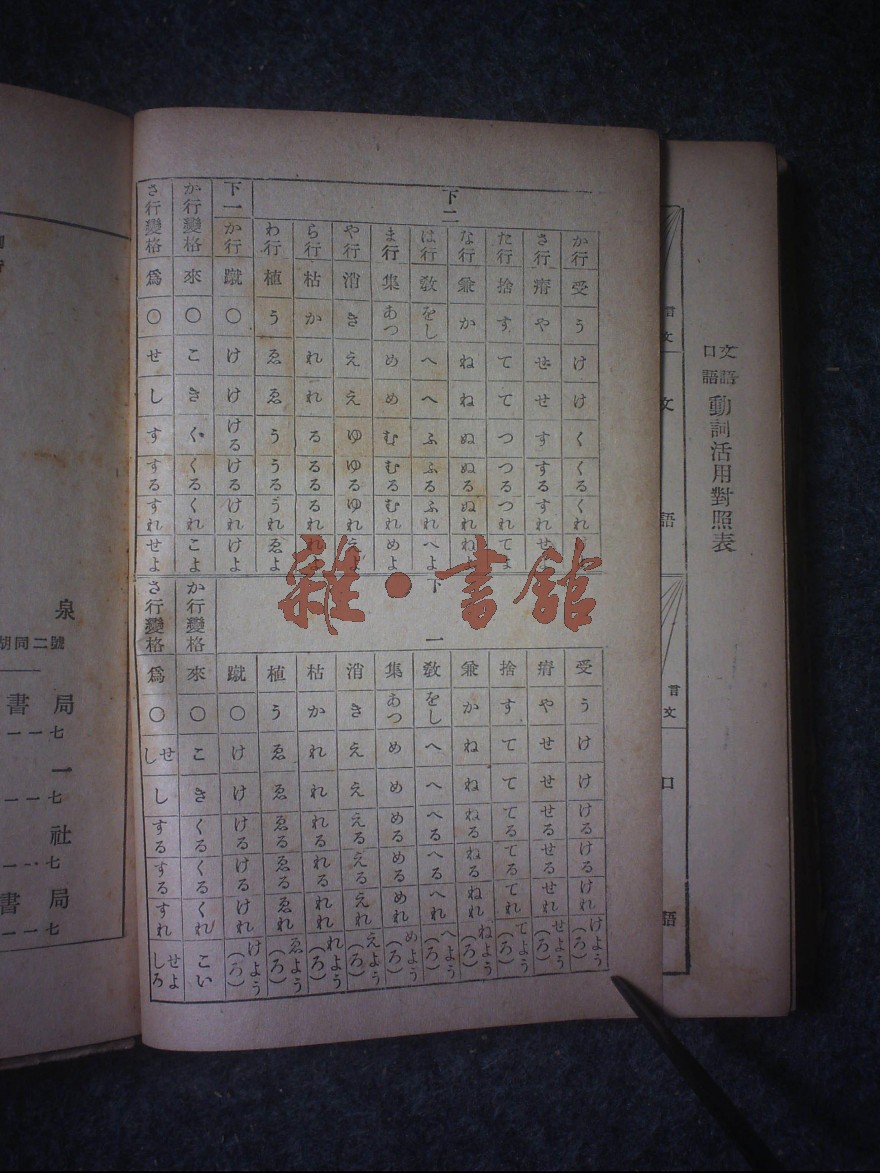 文語
口語
動詞活用對照表
言
文
文
語
言
文
口
語
下二
か行 受 う け け く くる くれ
さ行 瘠 や せ せ す する すれ せよ
た行 捨 す て て つ つる つれ てよ
な行 兼 か ね ね ぬ ぬる ぬれ ねよ
は行 敎 をし へ へ ふ ふる ふれ へよ
ま行 集 あつ め め む むる むれ めよ
や行 消 き え え ゆ ゆる ゆれ えよ
ら行 枯 か れ れ る るる るれ れよ
わ行 植 う ゑ ゑ う うる うれ ゑよ
下一 か行 蹴 〇 け け ける ける けれ けよ
か行變格 來 〇 こ き く くる くれ こよ
さ行變格 爲 〇 せ し す する すれ せよ
雜·書館
下一
受 う け け ける ける けれ けよう(ろ)
瘠 や せ せ せる せる せれ せよう(ろ)
捨 す て て てる てる てれ てよう(ろ)
兼 か ね ね ねる ねる ねれ ねよう(ろ)
敎 をし へ へ へる へる へれ へよう(ろ)
集 あつ め め める める めれ めよう(ろ)
消 き え え える える えれ えよう(ろ)
枯 か れ れ れる れる れれ れよう(ろ)
植 う ゑ ゑ ゑる ゑる ゑれ ゑよう(ろ)
蹴 〇 け け ける ける けれ けよう(ろ)
か行變格 來 〇 こ き くる くる くれ こい
さ行變格 爲 〇 せし し する する すれ せよしろ
泉
胡同二號
書局
一一七
一
一一七
社
一一七
書局
一一七